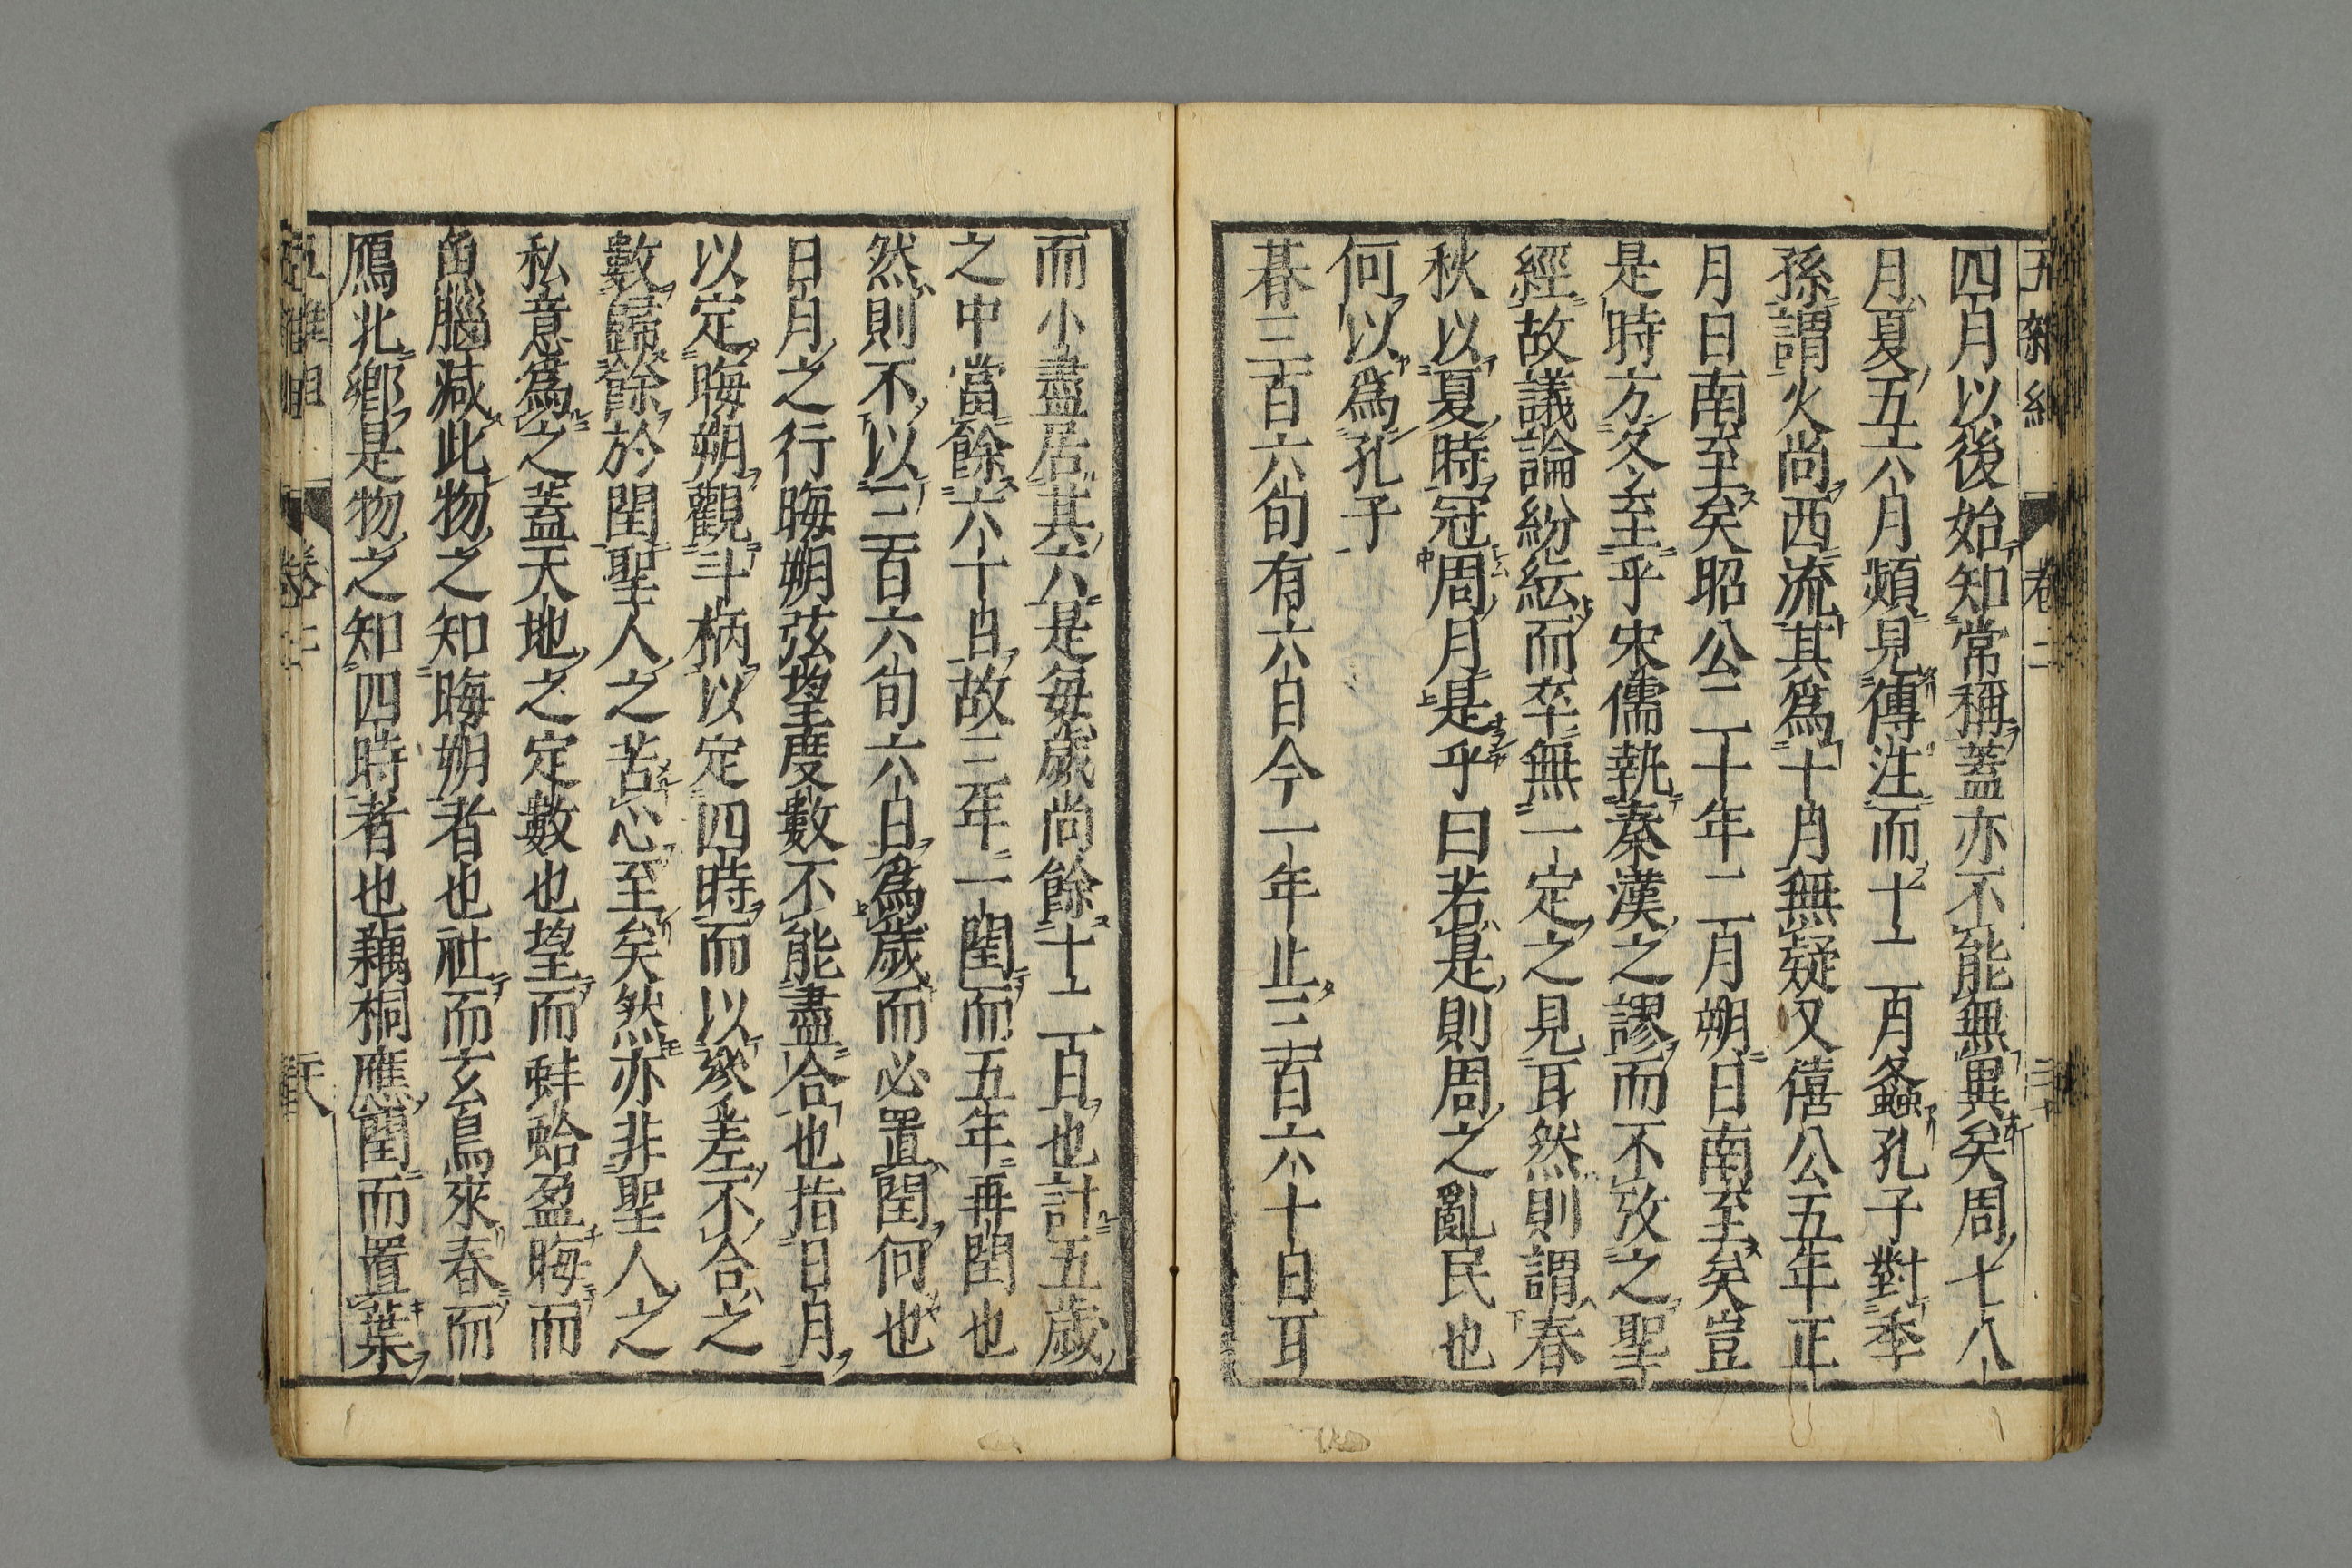 四月以後始知常稱蓋亦不能無異矣周七八
月夏五六月頻見傳注而十二月螽孔子對季
孫謂火尚西流其爲十月無疑又僖公五年正
月日南至矣昭公二十年二月朔日南至矣豈
是時方冬至乎宋儒執秦漢之謬而不攷之聖
經故議論紛紜而卒無一定之見耳然則謂春
秋以夏時冠周月是乎曰若是則周之亂民也
何以爲孔子
朞三百六旬有六日今一年止三百六十日耳
而小盡居其六是每歲尚餘十二日也計五歲
之中當餘六十日故三年一閏而五年再閏也
然則不以三百六旬六日爲歲而必置閏何也
日月之行晦朔弦望度數不能盡合也指日月
以定晦朔觀斗柄以定四時而以參差不合之
數歸餘於閏聖人之苦心至矣然亦非聖人之
私意爲之蓋天地之定數也望而蚌蛤盈晦而
魚腦減此物之知晦朔者也社而玄鳥來春而
鴈北鄉是物之知四時者也藕桐應閏而置葉
卷二